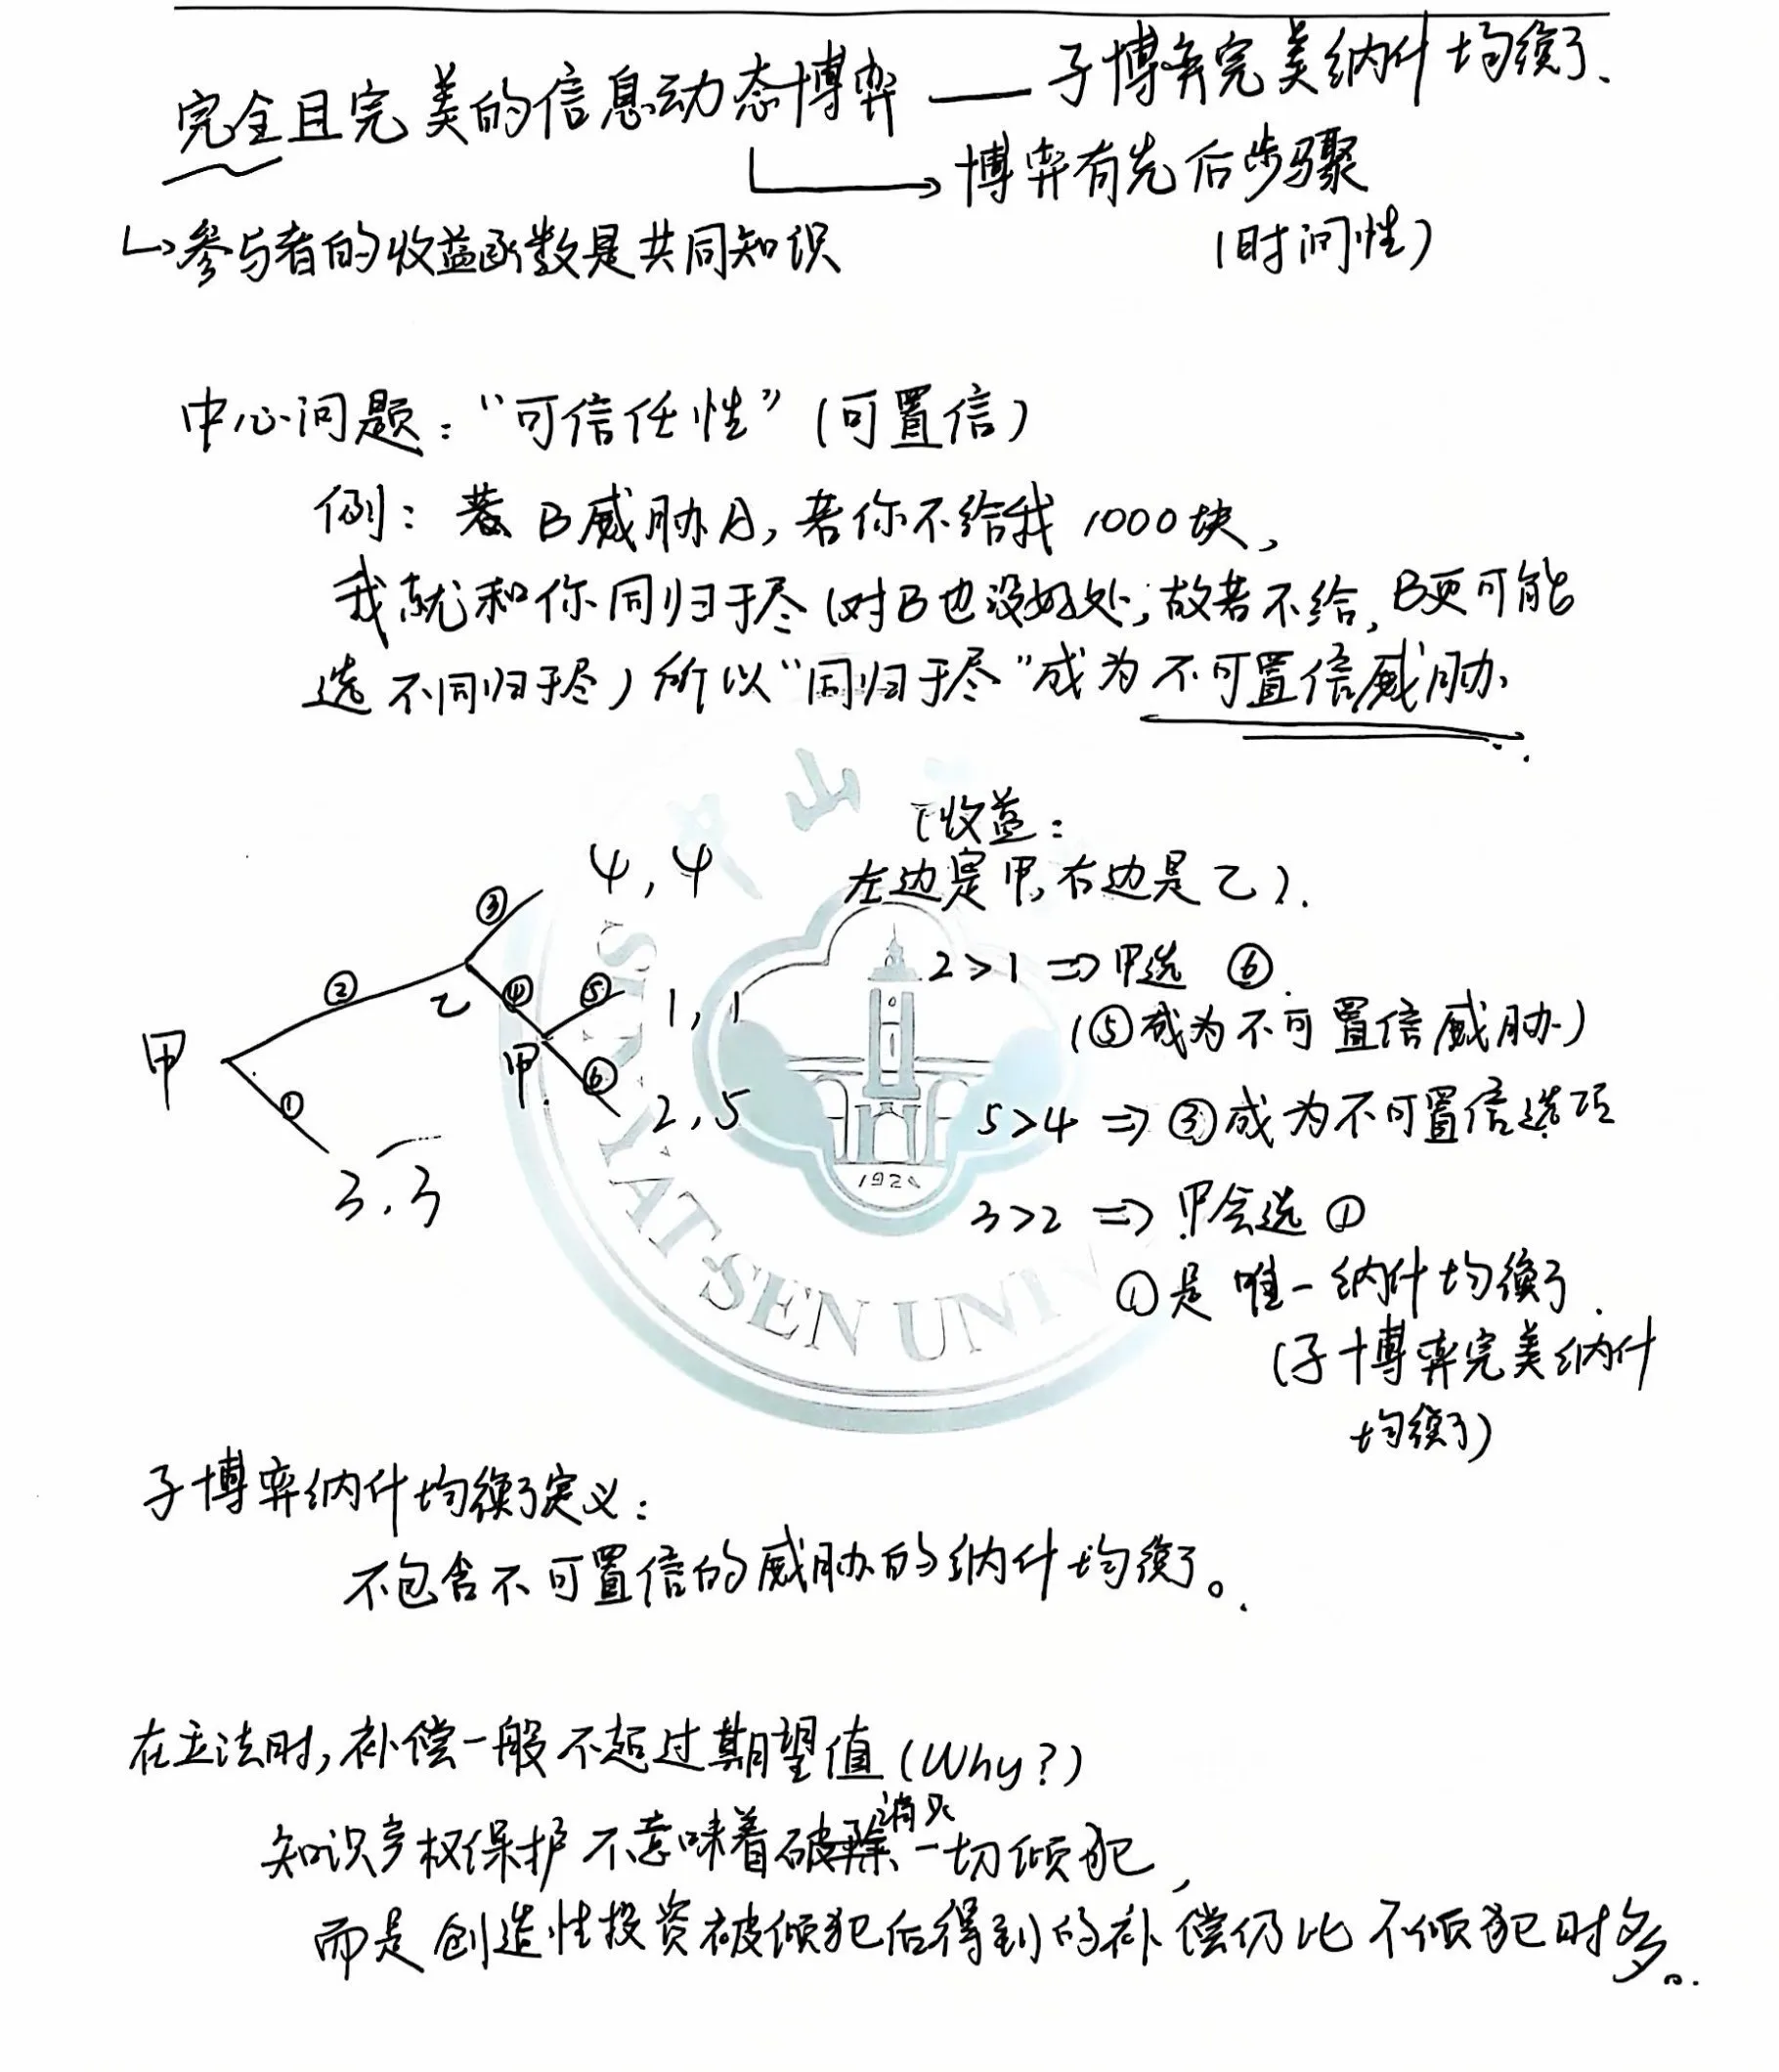 完全且完美的信息动态博弈 —— 子博弈完美纳什均衡、
→ 博弈有先后步骤
(时间性)
↳参与者的收益函数是共同知识
中心问题："可信任性"(可置信)
例：若B威胁A,若你不给我1000块,
我就和你同归于尽(对B也没好处;故若不给,B更可能
选不同归于尽)所以"同归于尽"成为不可置信威胁.
(收益：
左边是甲,右边是乙).
4,4
③
②
乙 ④ ⑤ 1,1
甲
甲 ⑥
2,5
①
3,3
2>1 ⇒ 甲选 ⑥
(⑤成为不可置信威胁)
5>4 ⇒ ③成为不可置信选项
3>2 ⇒ 甲会选①
①是唯一纳什均衡.
(子博弈完美纳什
均衡)
1924
SUN YAT-SEN UNIV
子博弈纳什均衡定义：
不包含不可置信的威胁的纳什均衡。
在立法时,补偿一般不超过期望值(Why?)
消灭
知识产权保护不意味着破除一切倾犯,
而是创造性投资被倾犯后得到的补偿仍比不倾犯时多。